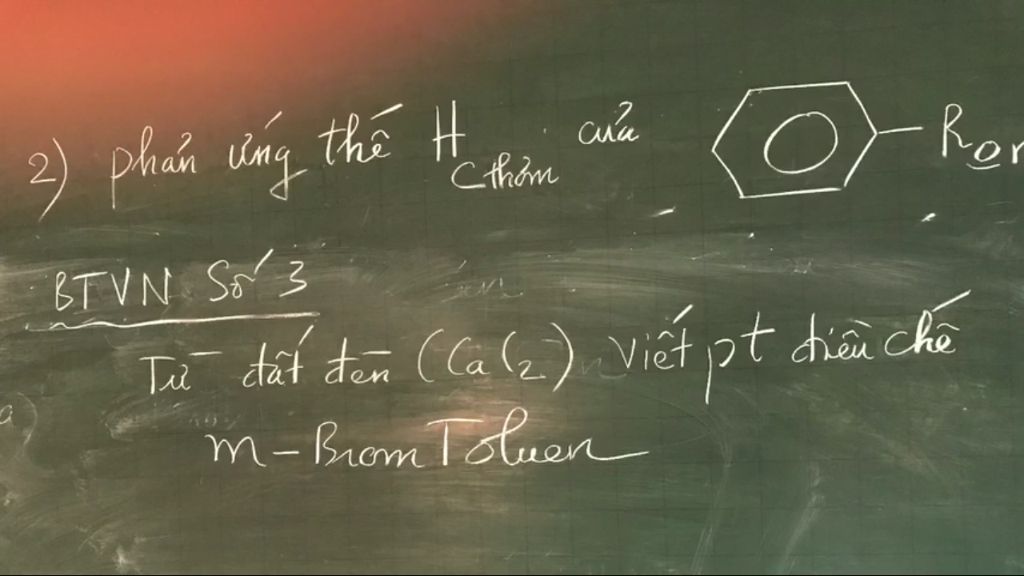 2) phản ứng thế H C thơm của R or
BTVN Số 3
Từ đất đèn (CaC2) viết pt điều chế
m - Brom Toluen